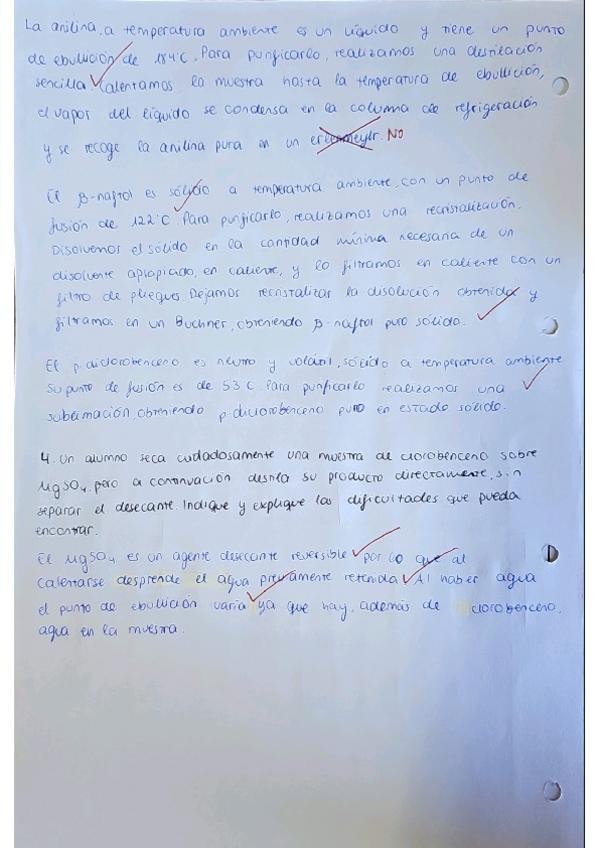 La anilina, a temperatura ambiente es un líquido y tiene un punto
de ebullición de 184°C. Para purificarlo, realizamos una destilación
sencilla. Calentamos la muestra hasta la temperatura de ebullición,
el vapor del líquido se condensa en la columna de refrigeración
y se recoge la anilina pura en un erlenmeyer. NO
El β-naftol es sólido a temperatura ambiente, con un punto de
fusión de 122°C. Para purificarlo, realizamos una recristalización.
Disolvemos el sólido en la cantidad mínima necesaria de un
disolvente apropiado, en caliente, y lo filtramos en caliente con un
filtro de pliegues. Dejamos recristalizar la disolución obtenida y
filtramos en un Buchner, obteniendo β-naftol puro sólido.
El p-diclorobenceno es neutro y volátil, sólido a temperatura ambiente
Su punto de fusión es de 53°C. Para purificarlo realizamos una
sublimación, obteniendo p-diclorobenceno puro en estado sólido.
4. Un alumno seca cuidadosamente una muestra de clorobenceno sobre
MgSO4, pero a continuación destila su producto directamente, sin
separar el desecante. Indique y explique las dificultades que pueda
encontrar.
El MgSO4 es un agente desecante reversible por lo que al
calentarse desprende el agua previamente retenida. Al haber agua
el punto de ebullición varía ya que hay, además de clorobenceno,
agua en la muestra.